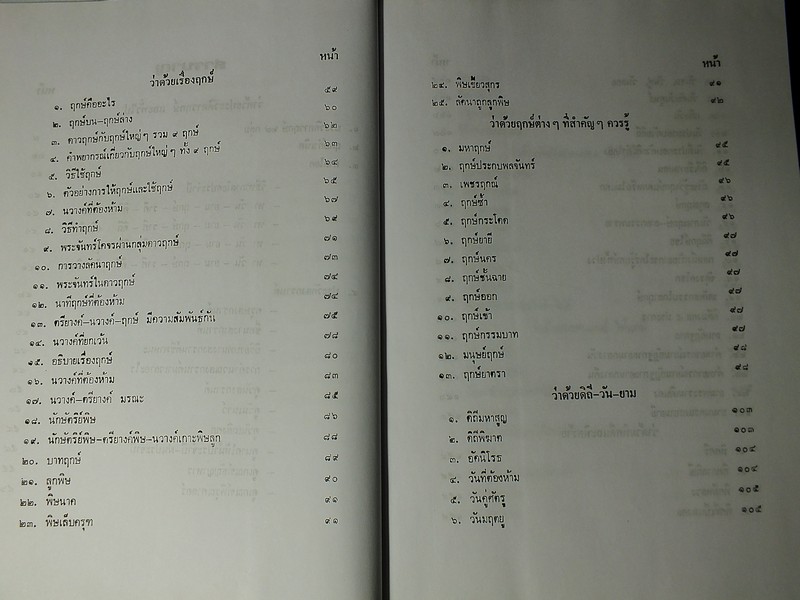 หน้า
ว่าด้วยเรื่องฤกษ์
๑. ฤกษ์คืออะไร ๕๙
๒. ฤกษ์บน-ฤกษ์ล่าง ๖๐
๓. ดาวฤกษ์กับฤกษ์ใหญ่ๆ รวม ๙ ฤกษ์ ๖๒
๔. คำพยากรณ์เกี่ยวกับฤกษ์ใหญ่ๆ ทั้ง ๙ ฤกษ์ ๖๓
๕. วิธีใช้ฤกษ์ ๖๔
๖. ตัวอย่างการให้ฤกษ์และใช้ฤกษ์ ๖๕
๗. นวางค์ที่ต้องห้าม ๖๗
๘. วิธีทำฤกษ์ ๖๙
๙. พระจันทร์โคจรผ่านกลุ่มดาวฤกษ์ ๗๑
๑๐. การวางลัคนาฤกษ์ ๗๓
๑๑. พระจันทร์ในดาวฤกษ์ ๗๔
๑๒. นาทีฤกษ์ที่ต้องห้าม ๗๔
๑๓. ตรียางค์-นวางค์-ฤกษ์ มีความสัมพันธ์กัน ๗๕
๑๔. นวางค์ที่ยกเว้น ๗๘
๑๕. อธิบายเรื่องฤกษ์ ๘๐
๑๖. นวางค์ที่ต้องห้าม ๘๓
๑๗. นวางค์-ตรียางค์ มรณะ ๘๕
๑๘. นักษัตริย์พิษ ๘๖
๑๙. นักษัตริย์พิษ-ตรียางค์พิษ-นวางค์เกาะพิษลูก ๘๘
๒๐. บาทฤกษ์ ๘๙
๒๑. ลูกพิษ ๙๐
๒๒. พิษนาค ๙๑
๒๓. พิษเล็บครุฑ ๙๑
หน้า
๒๔. พิษเขี้ยวสุกร ๙๑
๒๕. ลัคนาถูกลูกพิษ ๙๒
ว่าด้วยฤกษ์ต่างๆ ที่สำคัญๆ ควรรู้
๑. มหาฤกษ์ ๙๕
๒. ฤกษ์ประกบพลจันทร์ ๙๕
๓. เพชรฤกษ์ ๙๖
๔. ฤกษ์ซ้ำ ๙๖
๕. ฤกษ์กระโดด ๙๖
๖. ฤกษ์ยายี ๙๗
๗. ฤกษ์นคร ๙๗
๘. ฤกษ์ชั้นฉาย ๙๗
๙. ฤกษ์ออก ๙๗
๑๐. ฤกษ์เข้า ๙๗
๑๑. ฤกษ์กรรมบาท ๙๗
๑๒. มนุษย์ฤกษ์ ๙๘
๑๓. ฤกษ์ยาตรา ๙๘
ว่าด้วยดิถี-วัน-ยาม
๑. ดิถีมหาสูญ ๑๐๓
๒. ดิถีพิฆาต ๑๐๓
๓. อัคนิโรธ ๑๐๔
๔. วันที่ต้องห้าม ๑๐๔
๕. วันคู่ศัตรู ๑๐๕
๖. วันมฤตยู ๑๐๕